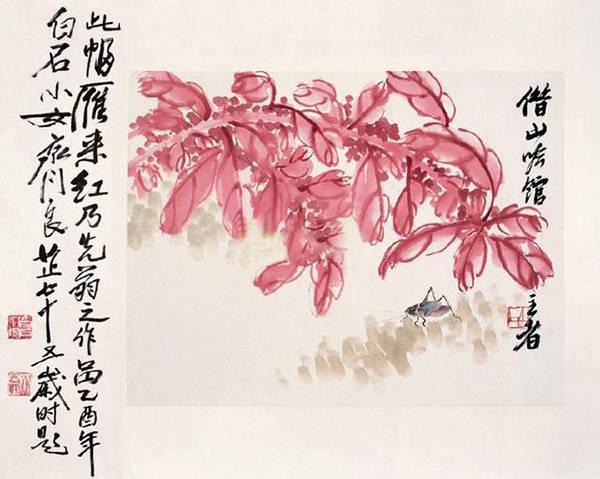 借山吟馆
主者
此幅雁来红乃先翁之作品乙酉年
白石小女齐良芷七十五岁时题